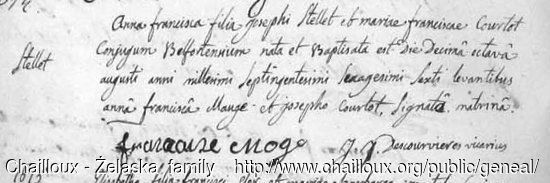 Anna francisca filia josephi Stellet et mariae franciscae Courtot
Conjugum Belfortensium nata et Baptisata est Die Decimâ octavâ
Stellet
augusti anni millesimi septingentesimi sexagesimi sexti levantibus
annâ franciscâ Mauge et josepho Courtot, signatâ matrinâ.
francoise Moge
Descourvieres vicarius
Chailloux - Żelaska family - http://www.chailloux.org/public/geneal/